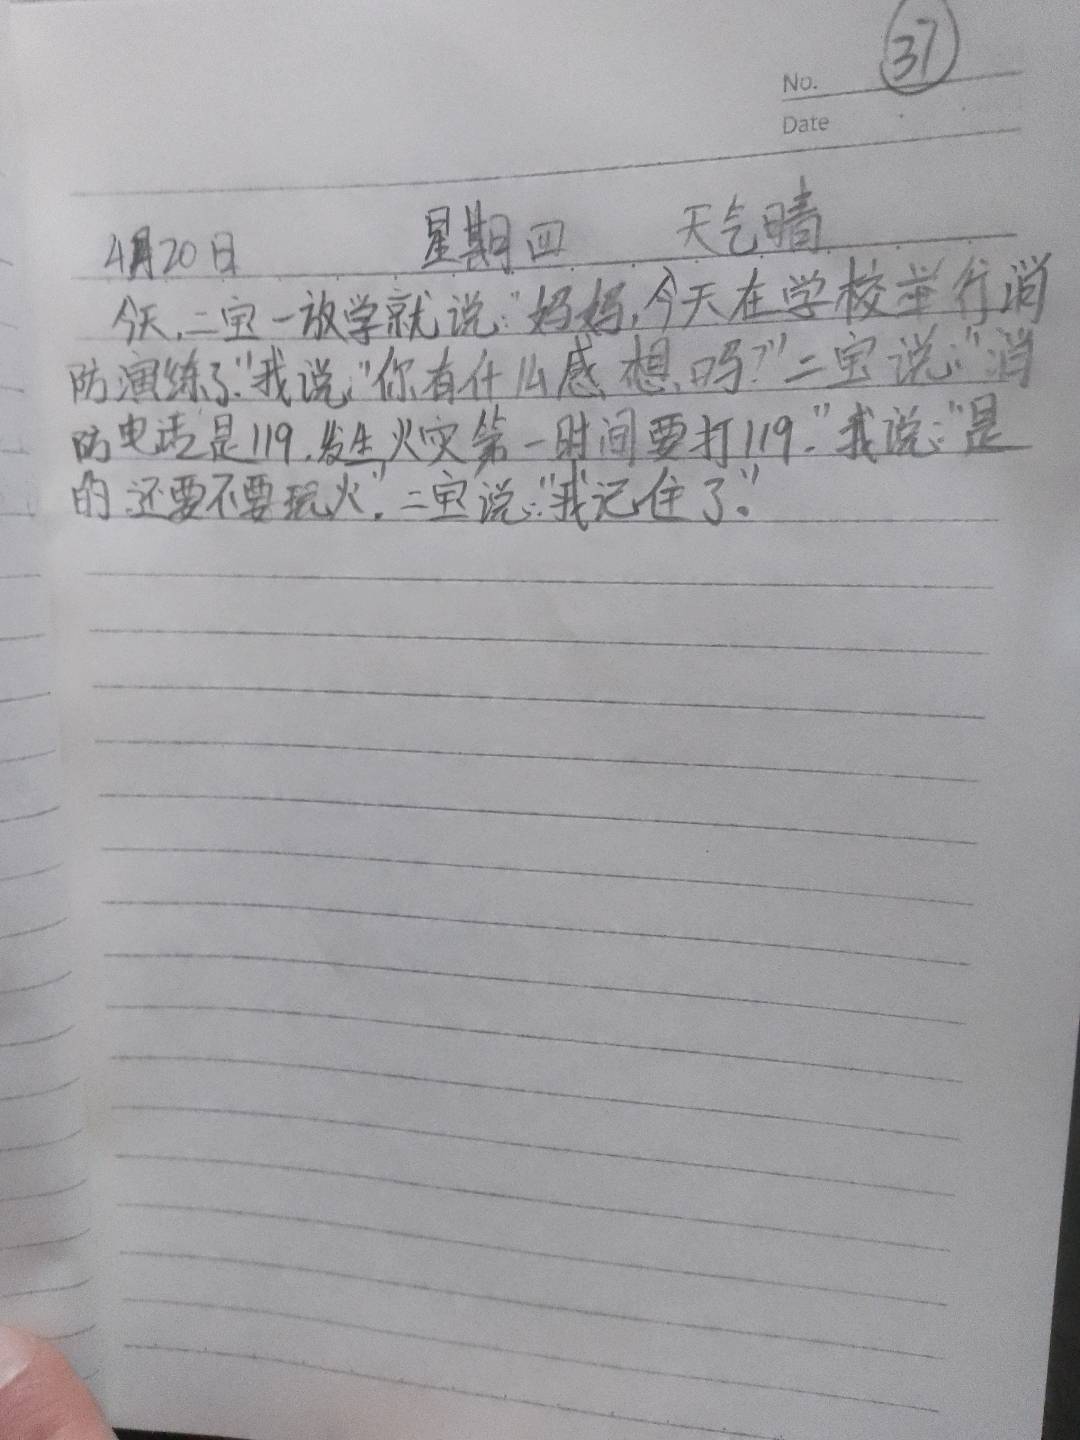 37
No.
Date
4月20日 星期四 天气晴
今天,二宝一放学就说:"妈妈,今天在学校举行消
防演练了."我说:"你有什么感想吗?"二宝说:"消
防电话是119.发生火灾第一时间要打119."我说:"是
的.还要不要玩火",二宝说:"我记住了。"